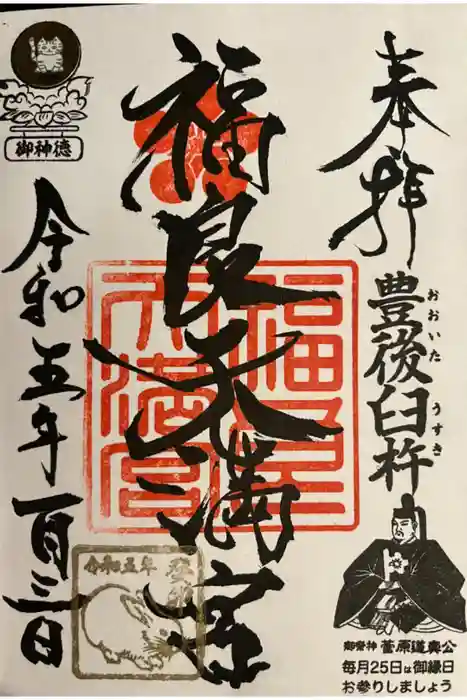 奉拝
豊後臼杵
おおいた
うすき
御祭神 菅原道真公
毎月25日は御縁日
お参りしましょう
福良天満宮
福良天満宮
御神徳
令和五年一月三日
令和五年